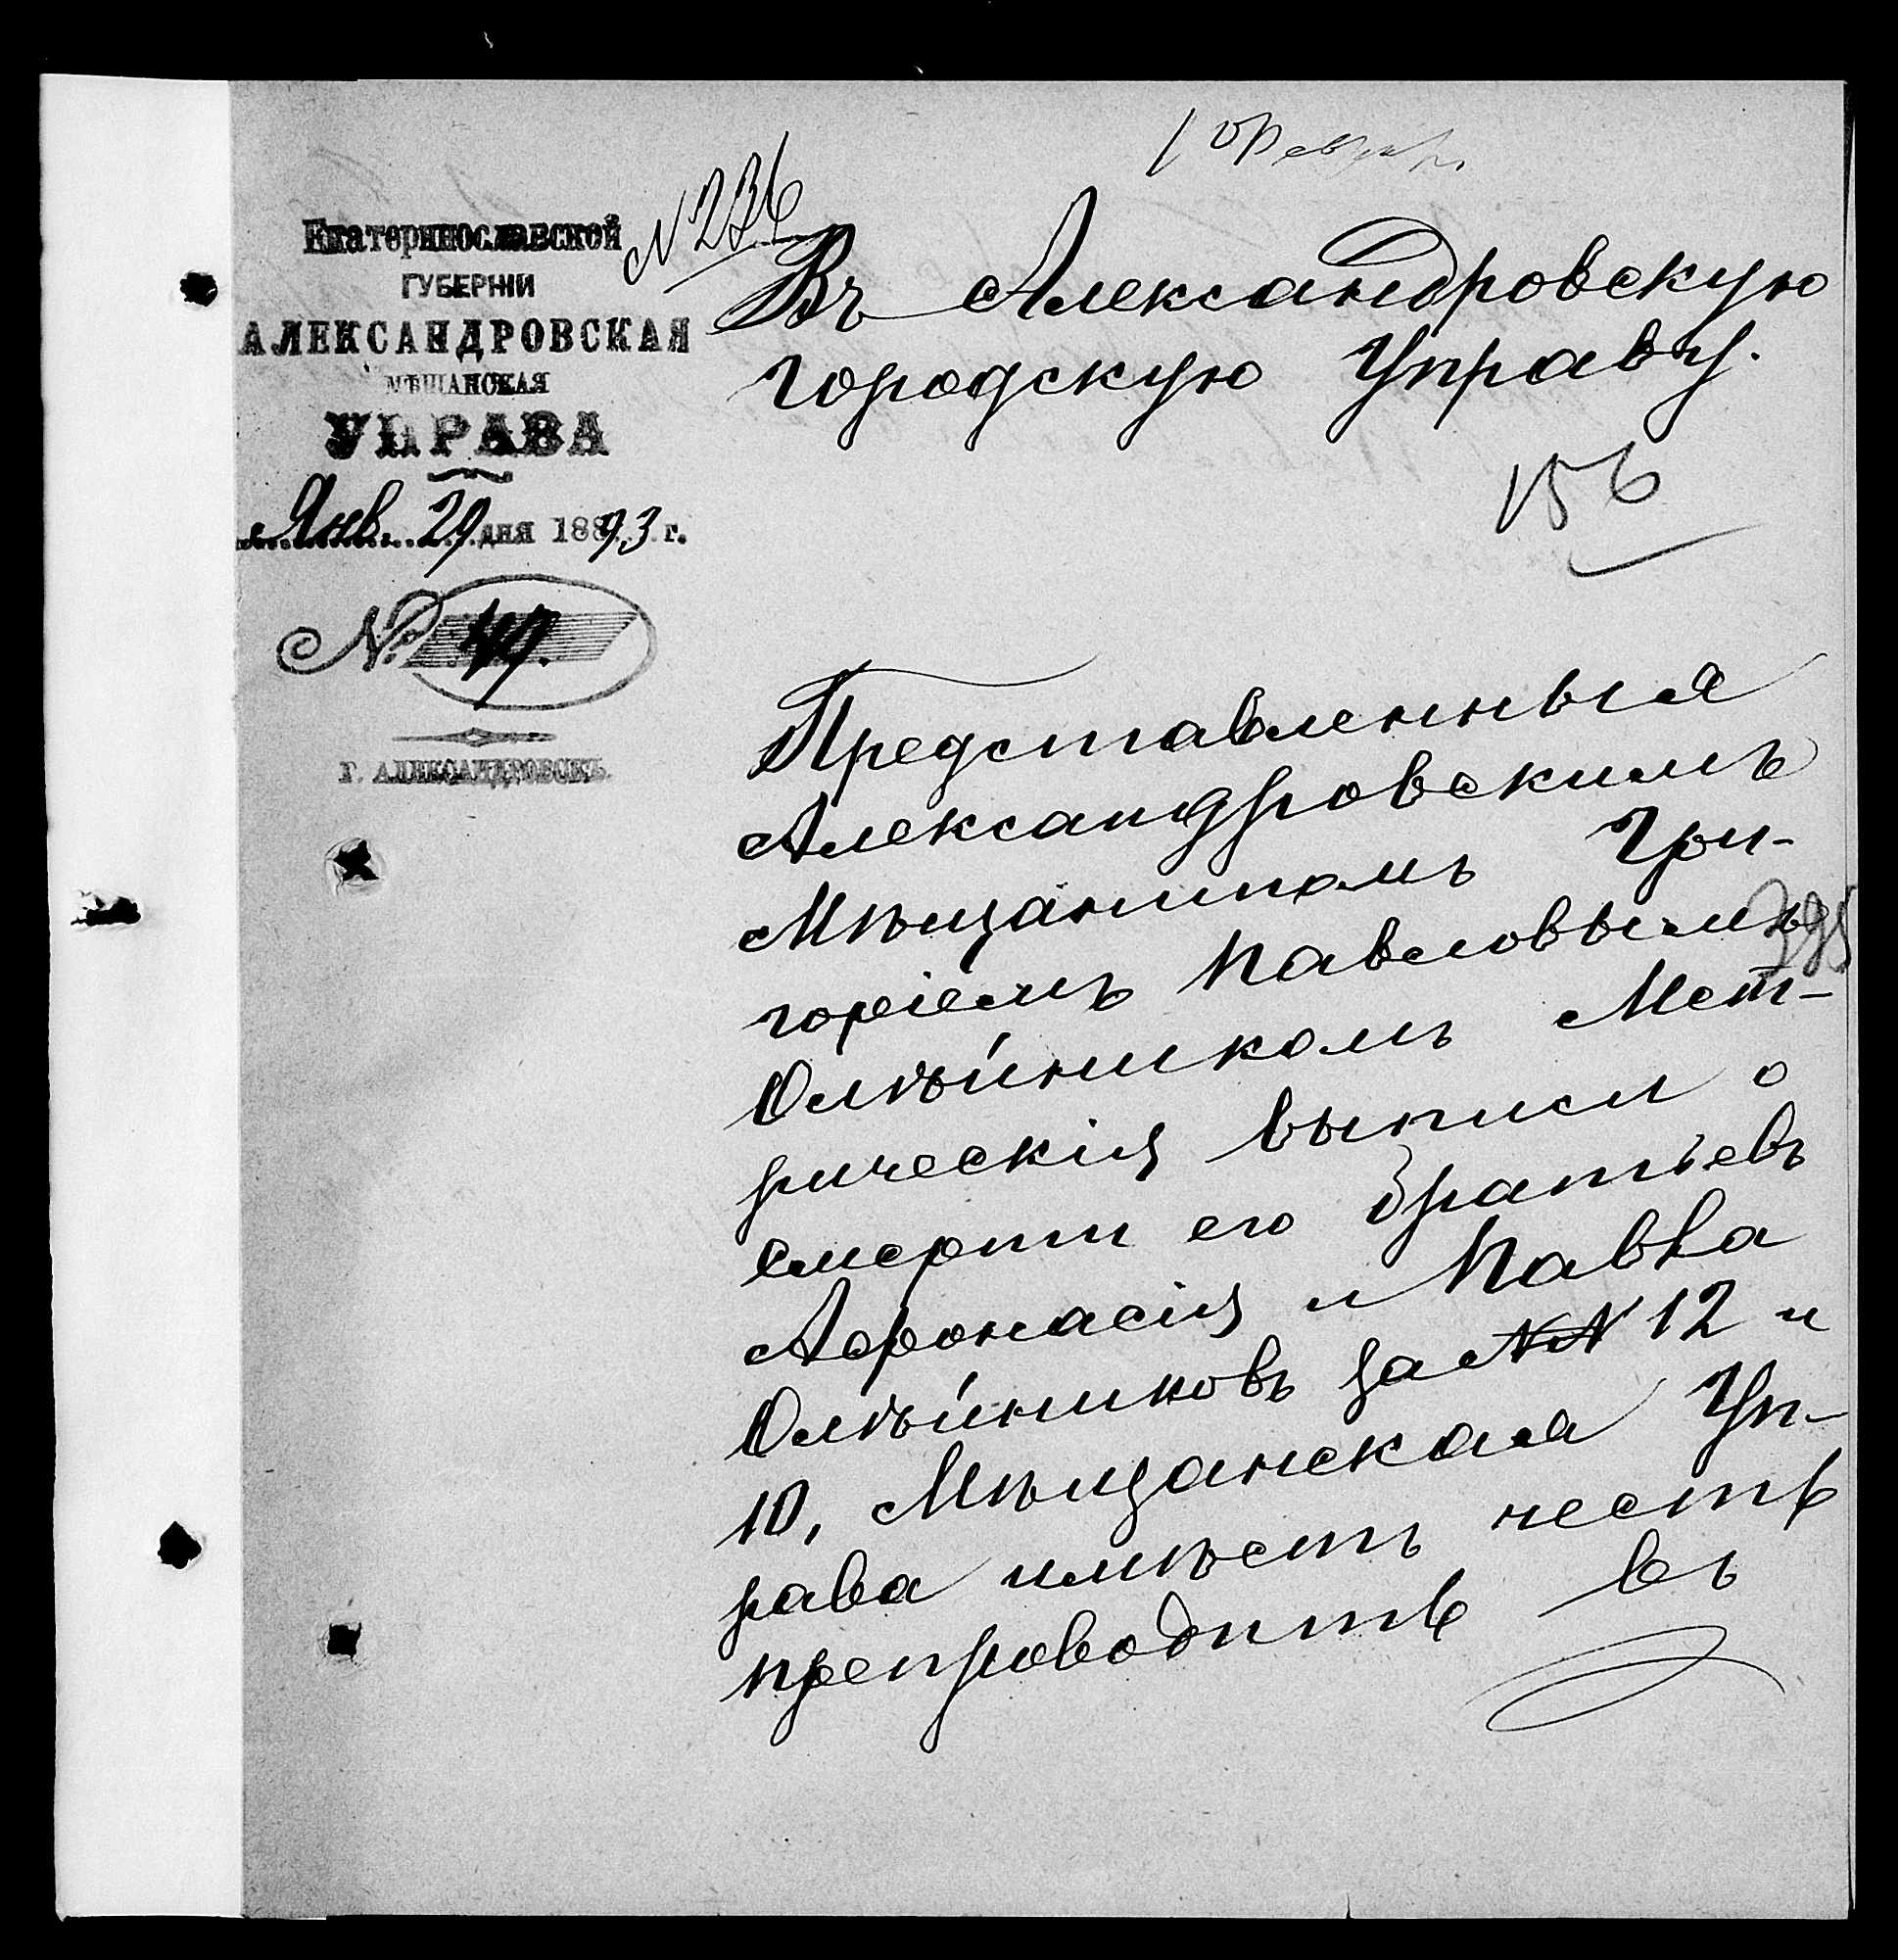 1 Февраля
№ 236
Екатеринославской
ГУБЕРНІИ
АЛЕКСАНДРОВСКАЯ
МѢЩАНСКАЯ
УПРАВА
Янв. 29 дня 1893 г.
№ 49.
Г. АЛЕКСАНДРОВСКЪ.
Въ Александровскую
городскую Управу.
156
Представленныя
Александровскимъ
Мѣщаниномъ Гри-
горіемъ Павловымъ
Олѣйникомъ Мет-
рическія выписи о
смерти его братьевъ
Афонасія и Павла
Олѣйниковъ за №№ 12 и
10, Мѣщанская Уп-
рава имѣетъ честь
препроводить въ